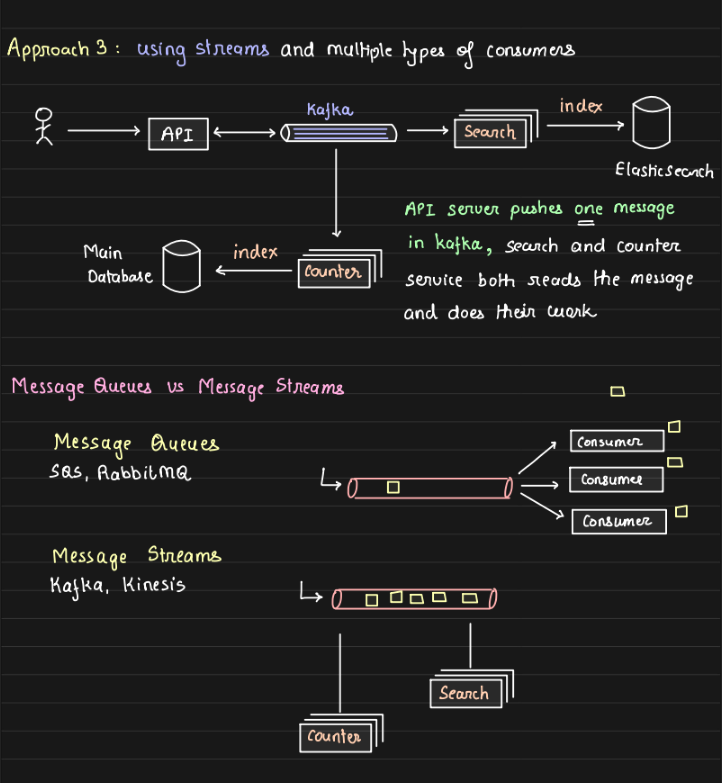 Approach 3: using streams and multiple types of consumers
Kafka
API
Search
index
Elasticsearch
API server pushes one message
in kafka, search and counter
service both reads the message
and does their work
Main
Database
index
Counter
Message Queues vs Message Streams
Message Queues
SQS, RabbitMQ
Consumer
Consumer
Consumer
Message Streams
Kafka, Kinesis
Search
Counter